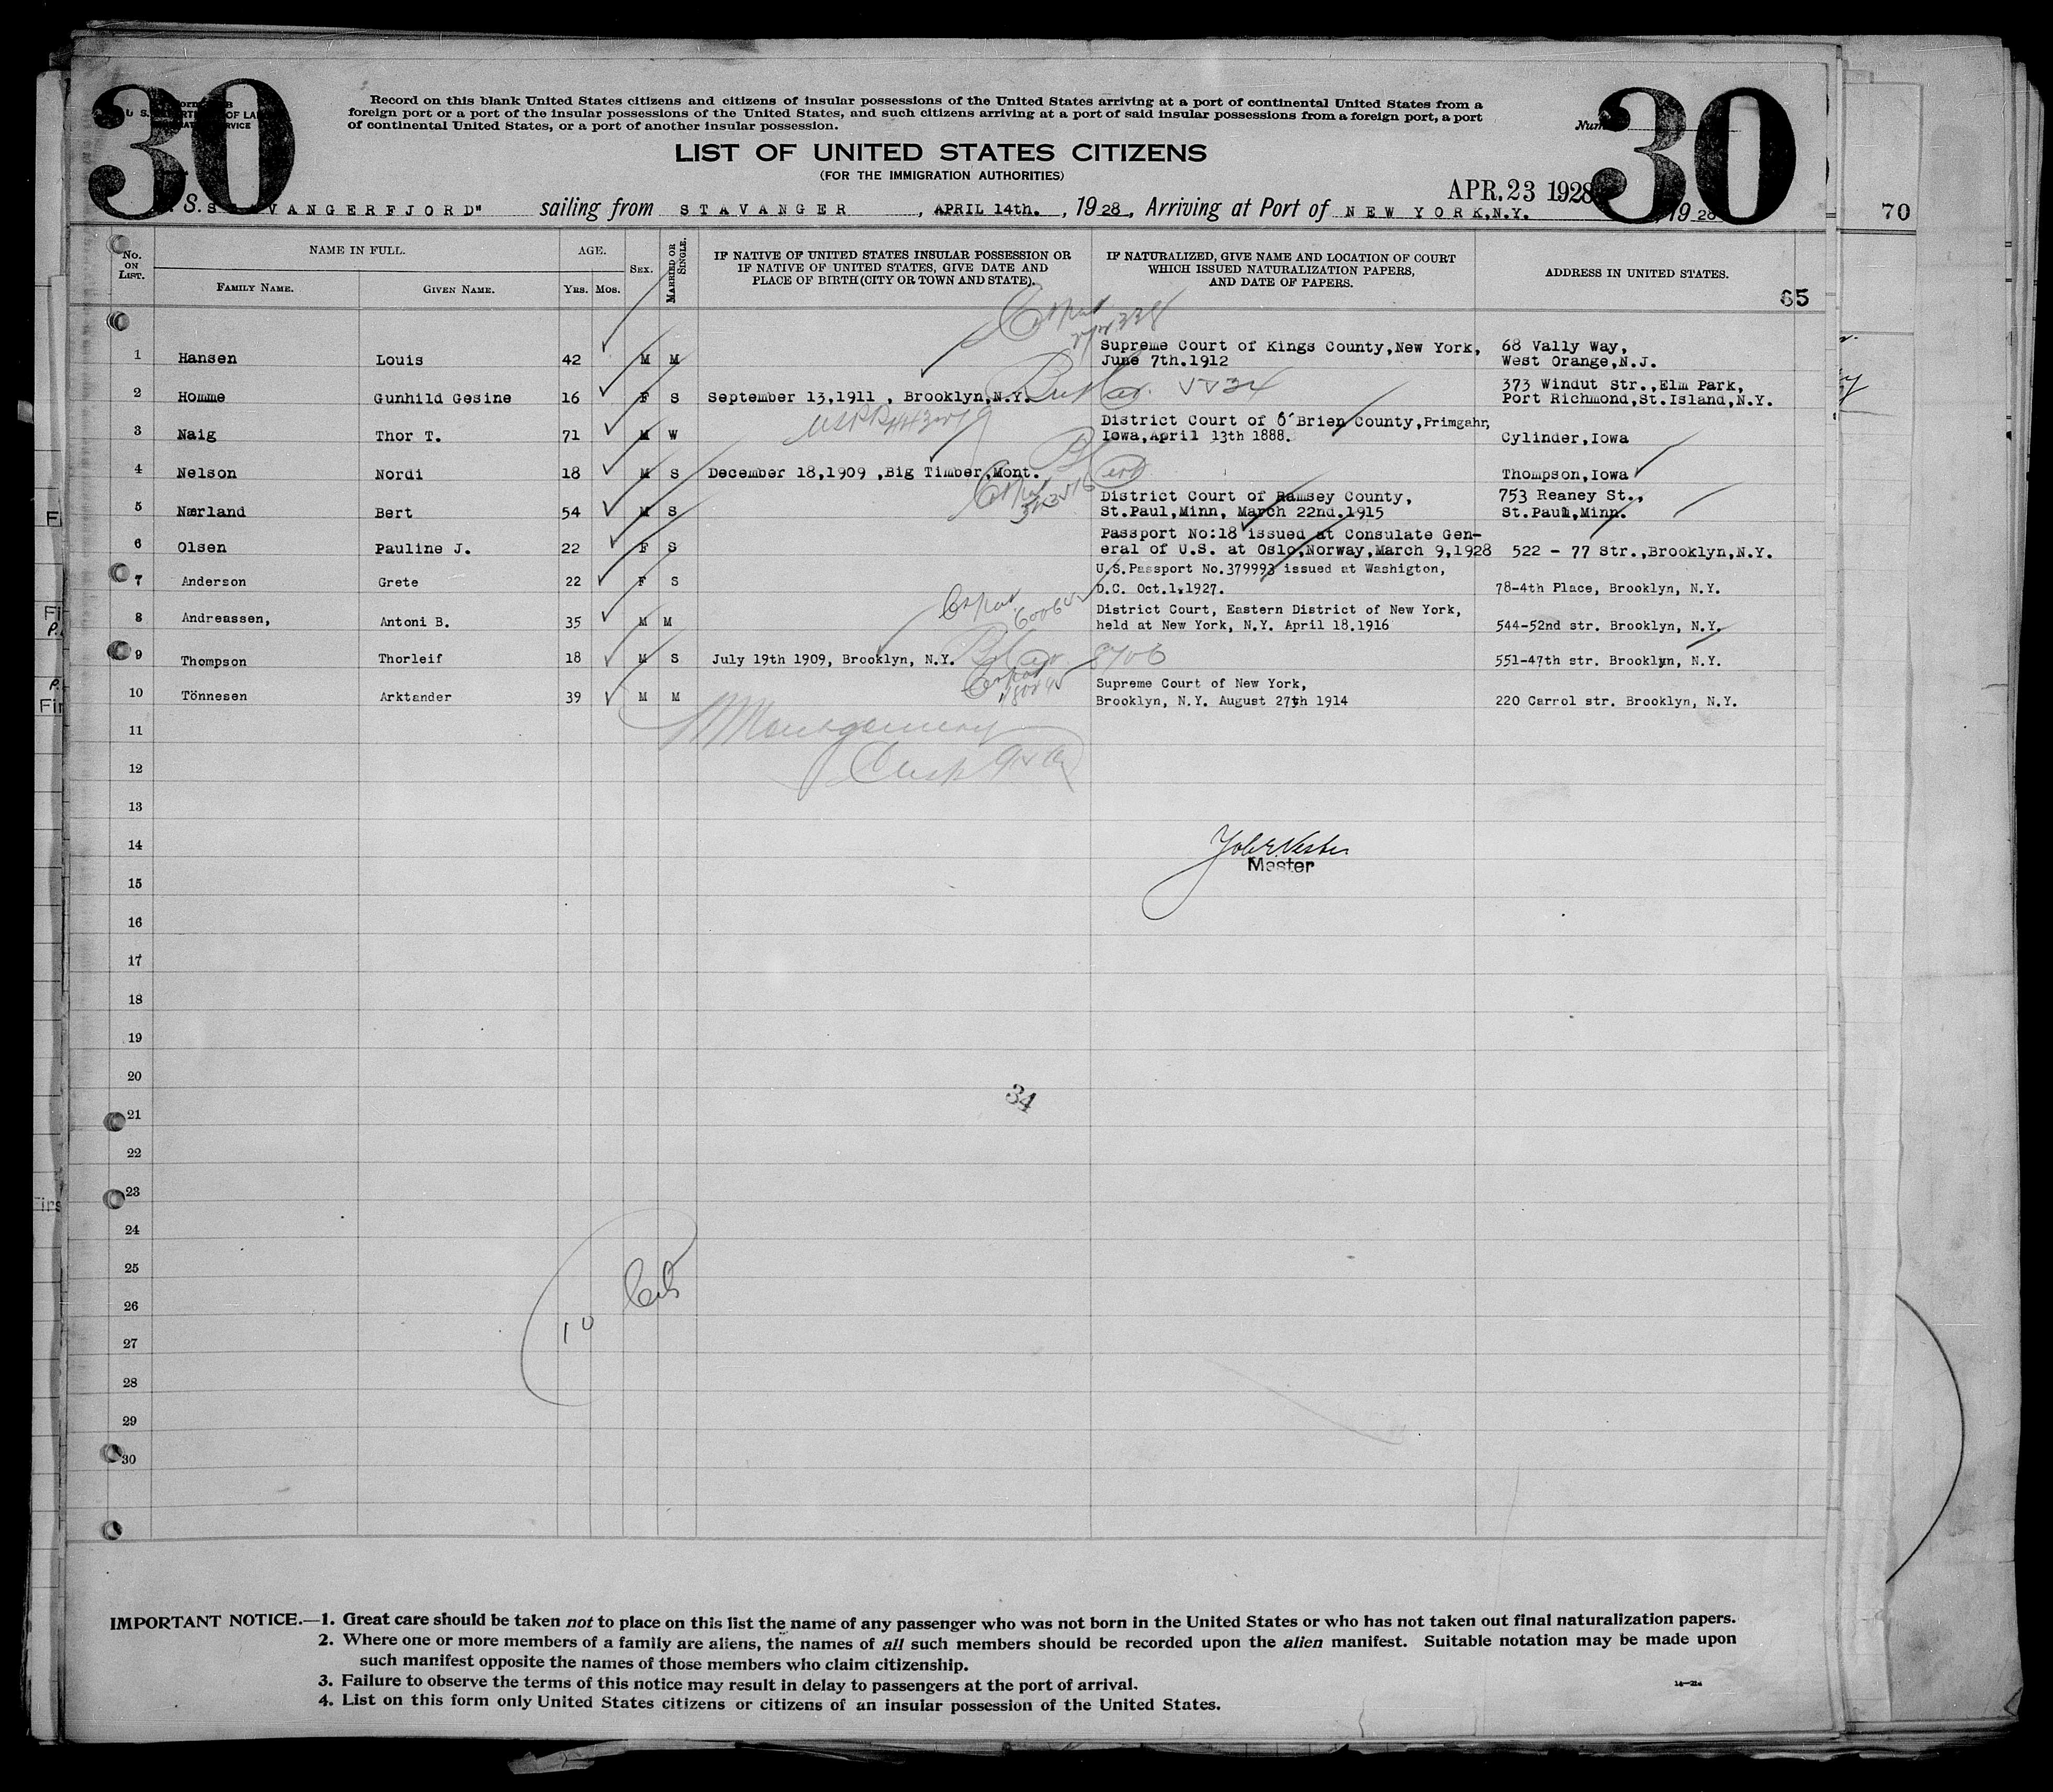 30
30
Record on this blank United States citizens and citizens of insular possessions of the United States arriving at a port of continental United States from a
foreign port or a port of the insular possessions of the United States, and such citizens arriving at a port of said insular possessions from a foreign port, a port
of continental United States, or a port of another insular possession.
LIST OF UNITED STATES CITIZENS
(FOR THE IMMIGRATION AUTHORITIES)
APR. 23 1928
S. S VANGERFJORD" sailing from STAVANGER, APRIL 14th., 1928, Arriving at Port of NEW YORK,N.Y. 1928
70
No. ON LIST.
NAME IN FULL.
FAMILY NAME.
GIVEN NAME.
AGE.
YRS. MOS.
SEX.
MARRIED OR SINGLE.
IF NATIVE OF UNITED STATES INSULAR POSSESSION OR
IF NATIVE OF UNITED STATES, GIVE DATE AND
PLACE OF BIRTH (CITY OR TOWN AND STATE).
IF NATURALIZED, GIVE NAME AND LOCATION OF COURT
WHICH ISSUED NATURALIZATION PAPERS,
AND DATE OF PAPERS.
ADDRESS IN UNITED STATES.
65
1 Hansen Louis 42 M M Supreme Court of Kings County,New York, 68 Vally Way,
June 7th.1912 West Orange,N.J.
2 Homme Gunhild Gesine 16 F S September 13,1911 , Brooklyn,N.Y. 373 Windut Str.,Elm Park,
Port Richmond,St.Island,N.Y.
3 Naig Thor T. 71 M W District Court of O´Brien County,Primgahr,
Iowa,April 13th 1888. Cylinder,Iowa
4 Nelson Nordi 18 M S December 18,1909 ,Big Timber,Mont. Thompson,Iowa
5 Nærland Bert 54 M S District Court of Ramsey County, 753 Reaney St.,
St.Paul,Minn, March 22nd.1915 St.Paul,Minn.
6 Olsen Pauline J. 22 F S Passport No:18 issued at Consulate Gen-
eral of U.S. at Oslo,Norway,March 9,1928 522 - 77 Str.,Brooklyn,N.Y.
7 Anderson Grete 22 F S U.S.Passport No.379993 issued at Washigton,
D.C. Oct.1.1927. 78-4th Place, Brooklyn, N.Y.
8 Andreassen, Antoni B. 35 M M District Court, Eastern District of New York,
held at New York, N.Y. April 18.1916 544-52nd str. Brooklyn, N.Y.
9 Thompson Thorleif 18 M S July 19th 1909, Brooklyn, N.Y. 551-47th str. Brooklyn, N.Y.
10 Tönnesen Arktander 39 M M Supreme Court of New York,
Brooklyn, N.Y. August 27th 1914 220 Carrol str. Brooklyn, N.Y.
11
12
13
14
Master
15
16
17
18
19
20
34
21
22
23
24
25
26
27
10
28
29
30
IMPORTANT NOTICE.—1. Great care should be taken not to place on this list the name of any passenger who was not born in the United States or who has not taken out final naturalization papers.
2. Where one or more members of a family are aliens, the names of all such members should be recorded upon the alien manifest. Suitable notation may be made upon
such manifest opposite the names of those members who claim citizenship.
3. Failure to observe the terms of this notice may result in delay to passengers at the port of arrival.
4. List on this form only United States citizens or citizens of an insular possession of the United States.